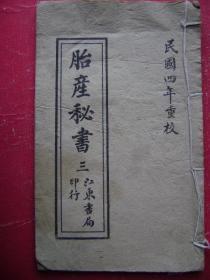 民國四年重校
胎產秘書
三
江東書局
印行